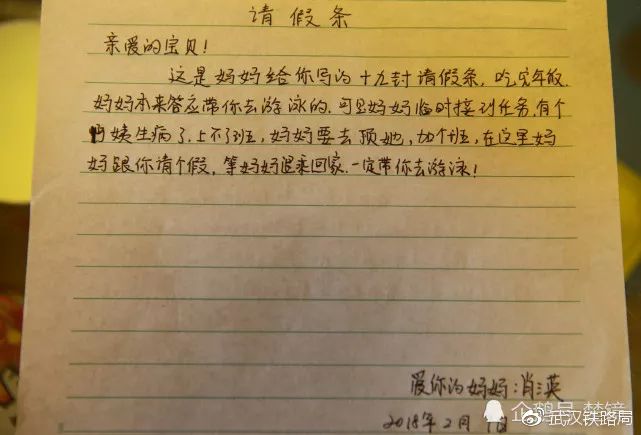 请假条
亲爱的宝贝!
这是妈妈给你写的十九封请假条,吃完年饭
妈妈本来答应带你去游泳的.可是妈妈临时接到任务.有个
阿姨生病了.上不了班,妈妈要去顶她,加个班,在这里妈
妈跟你请个假,等妈妈退乘回家.一定带你去游泳!
爱你的妈妈:肖英
2018年2月 日
企鹅号 楚镜
@武汉铁路局